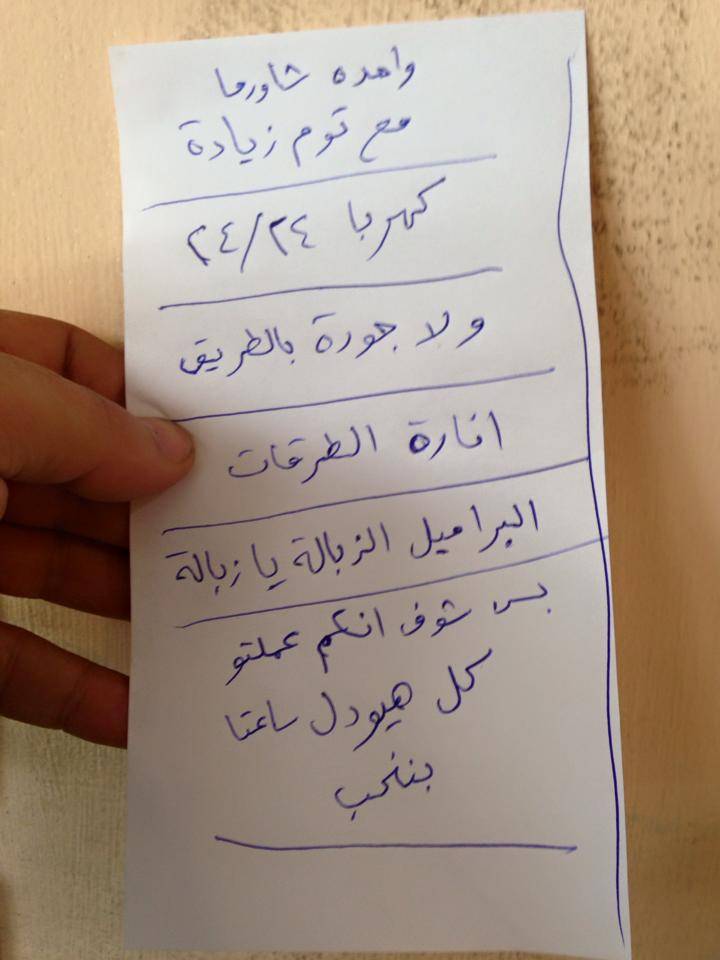 واحده شاورما
مع توم زيادة
كهربا ٢٤/٢٤
ولا جورة بالطريق
انارة الطرقات
البراميل الزبالة يا زبالة
بس شوف انكم عملتو
كل هيودل ساعتا
بنتخب